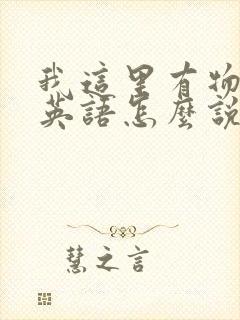 我這里有物
英語怎麼說
慧之言